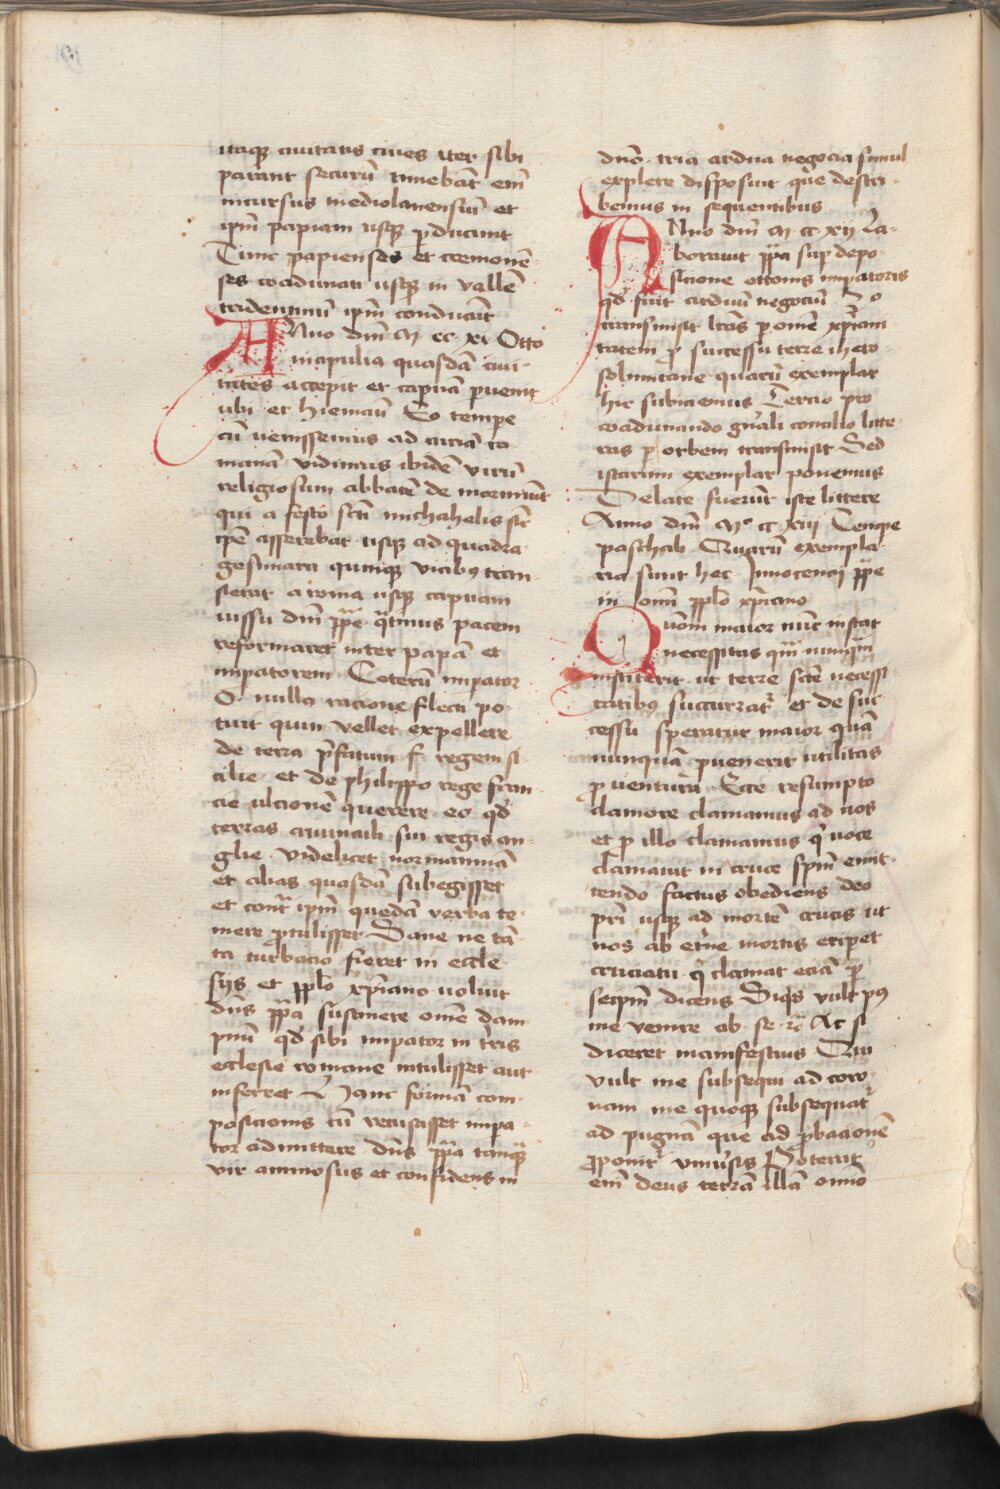 itaqꝫ ciuitatis ciues iter sibi
parant securū timebāt em̄
incursus mediolanensiū et
ip̄m papiam usqꝫ ꝑducunt
Tunc papienses et cremonē-
ses coadunati usqꝫ in vallē
tridentinū ip̄m conducūt
Anno dn̄i M cc xi Otto
in apulia quasdā ciui-
tates accepit et capuā ꝑuenit
ubi et hiemauī Eo tempe
cū venissemus ad curiā ro
manā vidimus ibidē virū
religiosum abbatē de morimūt
qui a festo sc̄ti michahelis sic̄
ip̄e asserebat usqꝫ ad quadra
gesimam quinqꝫ vicibꝰ tran-
sierat a roma usqꝫ capuam
iussu dn̄i pp̄e q̄tinus pacem
reformaret inter papā et
impatorem Ceterū impator
O. nulla racione flecti po-
tuit quin vellet expellere
de terra p̄fatum f. regem si
cilie et de philippo rege fran-
cie ulcionē querere eo qd̄
terras auunculi sui regis an-
glie videlicet normanniā
et alias quasdā subegisset
et cont̄ ip̄m quedā verba te-
mere ꝓtulisset Sane ne tā-
ta turbacio fieret in eccle-
sijs et pp̄lo xp̄iano voluit
dn̄s pp̄a sustinere omē dam
pnū qd̄ sibi impator in t̄ris
ecclesie romane intulisset aut
inferret Hanc formā com-
posicionis cū recusasset impa-
tor admittere dn̄s pp̄a tanqꝫ
vir animosus et confidens in
dn̄o tria ardua negocia simul
explere disposuit que descri-
bemus in sequentibus
Anno dn̄i M cc xij La-
borauit pp̄a sup depo-
sicione ottonis impatoris
qd̄ fuit arduū negociū 2o
transmisit lr̄as ꝑ omē xp̄iani
tatem ꝓ successu terre ihero-
solimitane quarū exemplar
hic subiciemus Tercio pro
coadunando gn̄ali concilio litte-
ras ꝑ orbem transmisit Sed
istarum exemplar ponemus
Delate fuerūt iste littere
Anno dn̄i Mo cc xiij Tempe
paschali Quarū exempla-
ria sunt hec Innocencij pp̄e
in om̄i pp̄lo xp̄iano
Quōm maior nūc instat
necessitas qm̄ nunqm̄
institerit ut terre sc̄te necessi
tatibꝰ succurrat᷑ et de suc
cessu speratur maior quā
nunquā puenerit utilitas
ꝓventura Ecce resumpto
clamore clamamus ad vos
et ꝓ illo clamamus q̄ voce
clamauit in cruce sp̄m emit-
tendo factus obediens deo
pr̄i usqꝫ ad mortē crucis ut
nos ab et̄ne mortis eripet
cruciatu q̄ clamat eciā ꝑ
seip̄m dicens Siqs vult pꝰ
me venire ab se rc̄ Ac si
diceret manifestius Qui
vult me subsequi ad coro-
nam me quoqꝫ subsequat᷑
ad pugnā que ad ꝓbacionē
ꝓponit᷑ vniūsis Poterat
em̄ deus terrā illā omīo